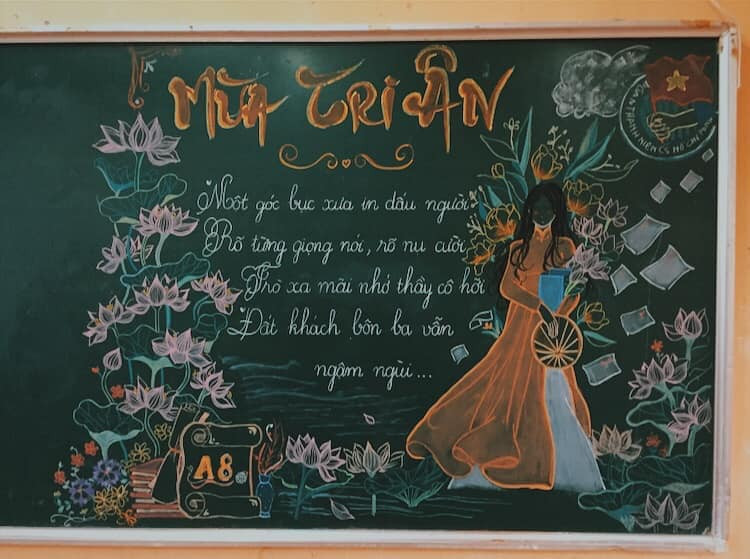 MÙA TRI ÂN
ĐOÀN THANH NIÊN CS HỒ CHÍ MINH
Một góc bục xưa in dấu người
Rõ từng giọng nói, rõ nụ cười
Trò xa mãi nhớ thầy cô hỡi
Đất khách bôn ba vẫn
ngậm ngùi...
A8